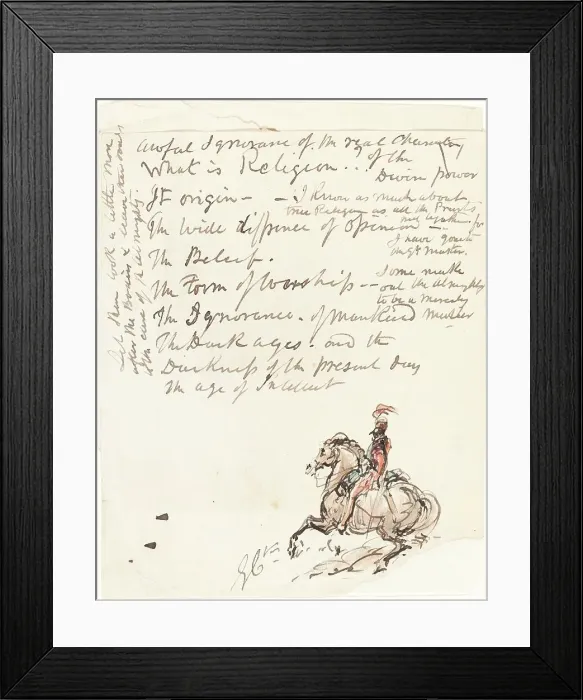 awful Ignorance of the real Character
What is Religion..? of the
Divin power
It origin - - I know as much about
true Religion as all the Priests
put together. for
The wide diffirence of Opinion -
I have gone to
the Belief.
Some make
out the Almighty
The Form of Worship --
to be a Merciful
The Ignorance. of Mankind Master
The Dark ages. and the
Darkness of the present Day
the age of Intellect
Let them look a little more
after the
& leave
the care of the almighty